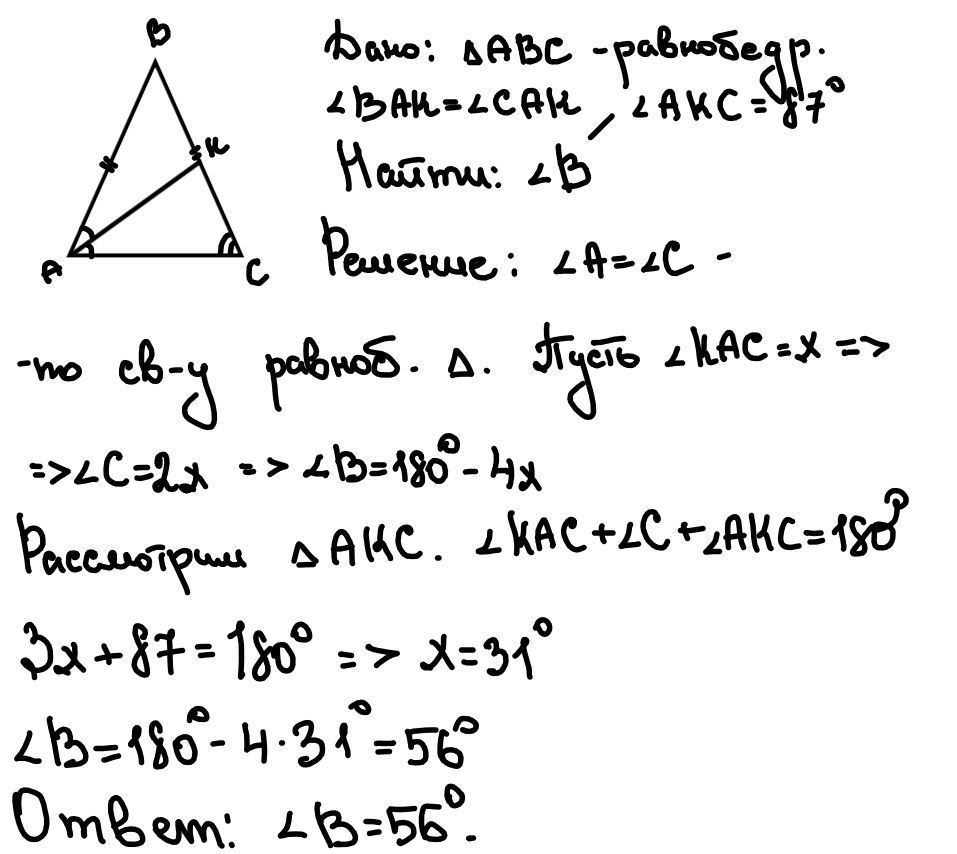 B
K
A
C
Дано: △ABC - равнобедр.
∠BAK=∠CAK ∠AKC=87°
Найти: ∠B
Решение: ∠A=∠C -
-по св-у равноб. △. Пусть ∠KAC=x =>
=>∠C=2x => ∠B=180°-4x
Рассмотрим △AKC. ∠KAC+∠C+∠AKC=180°
3x+87=180° => x=31°
∠B=180°-4·31°=56°
Ответ: ∠B=56°.